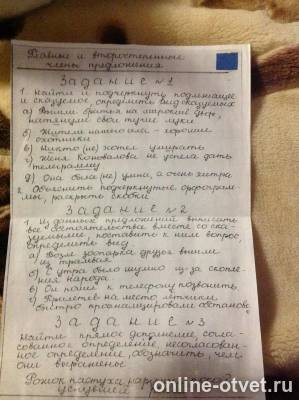 Главные и второстепенные
члены предложения
Задание №1
1. Найти и подчеркнуть подлежащее
и сказуемое, определить вид сказуемых
а) Вышли братья на широкий двор,
натянули свои тугие луки
б) Жители нашего села - хорошие
охотники
в) Никто (не) хотел умирать
г) Женя Коновалова не успела дать
телеграмму
д) Она была (не) умна, а очень хитра
2. Объяснить подчеркнутые орфограм-
мы, раскрыть скобки
Задание №2
1. Из данных предложений выписать
все обстоятельства вместе со ска-
зуемыми, поставить к ним вопрос
определить вид
а) Возле зоопарка друзья вышли
из трамвая
б) С утра было шумно из-за скоп-
ления народа
в) Он пошел к телефону позвонить
г) Прилетев на место лётчики
быстро проанализировали обстановку
Задание №3
Найти прямое дополнение, согла-
сованное определение, несогласован-
ное определение, обозначить, чем
они выражены
Рожок пастуха
услышал
online-otvet.ru